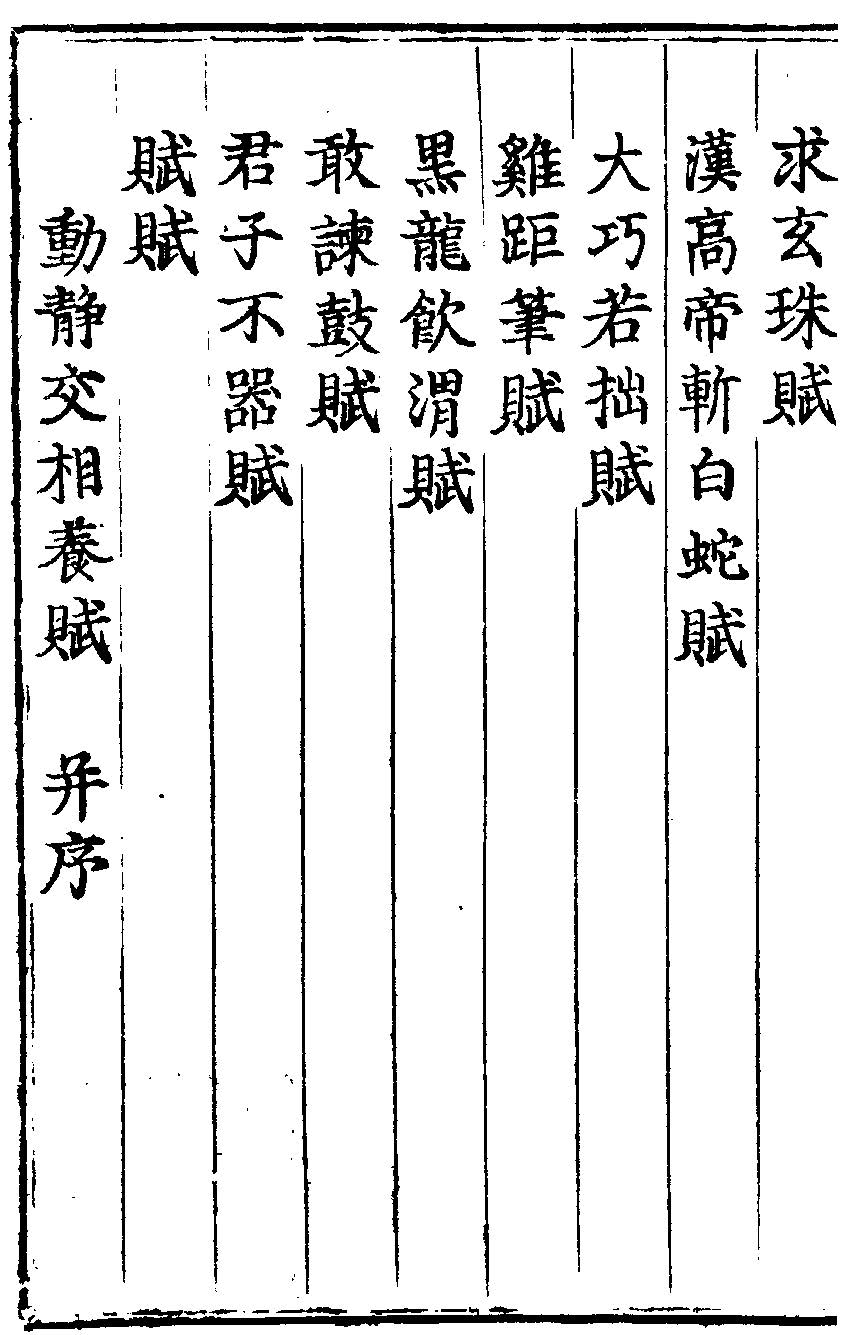 求玄珠賦
漢高帝斬白蛇賦
大巧若拙賦
雞距筆賦
黒龍飲渭賦
敢諫鼓賦
君子不器賦
賦賦
動静交相養賦 并序